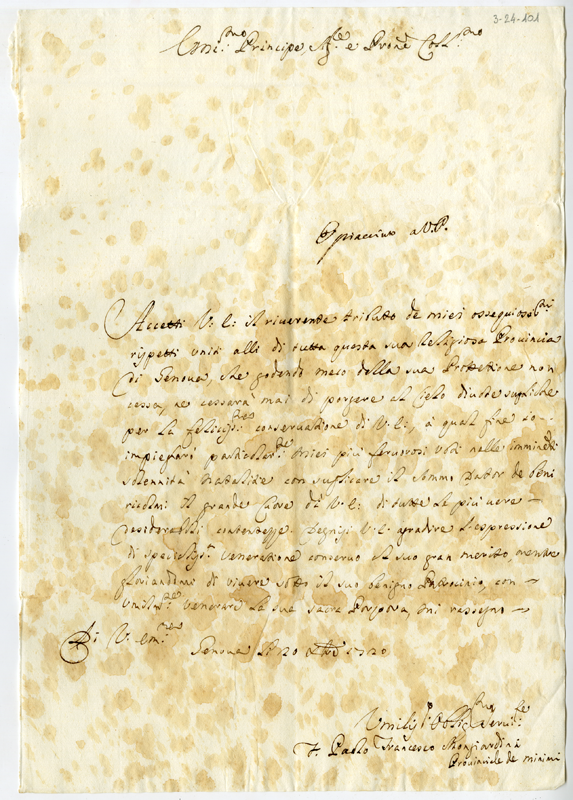 3-24-101
Emi:mo Principe, Sig:re e Prone Coll:mo
Accetti V: E: il riverente tributo de miei ossequiosi:mi
rispetti uniti alli di tutta questa sua Religiosa Provincia
di Genova, che godendo meco della sua Protettione non
cessa, ne cessarà mai di porgere al Cielo divote supliche
per la felicis:ma conservatione di V: E:, a qual fine io
impiegarò particolar:te miei più fervorosi voti nelle imminenti
solennità Natalitie con suplicare il sommo Dattor de beni
ricolmi il grande Cuore di V: E: di tutte le più vere
desiderabili contentezze. Degnisi V: E: agradire l'espressione
di specialis:ma veneratione conservo al suo gran merito, mentre
gloriandomi di vivere sotto il suo benigno Patrocinio, con
umilis:te venerare la sua sacra Porpora, mi rassegno
Di V: Em:
Genova li 20 1720
Umilis:mo Servi:re
F. Paolo Francesco Mongiardini
Provinciale de Minimi